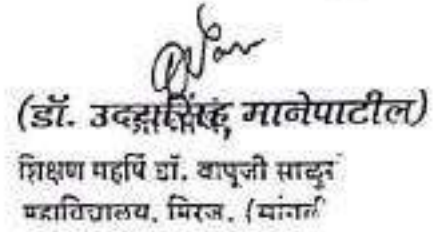 (डॉ. उदयसिंह मानेपाटील)
शिक्षण महर्षि डॉ. बापूजी साळुंखे
महाविद्यालय, मिरज. (सांगली